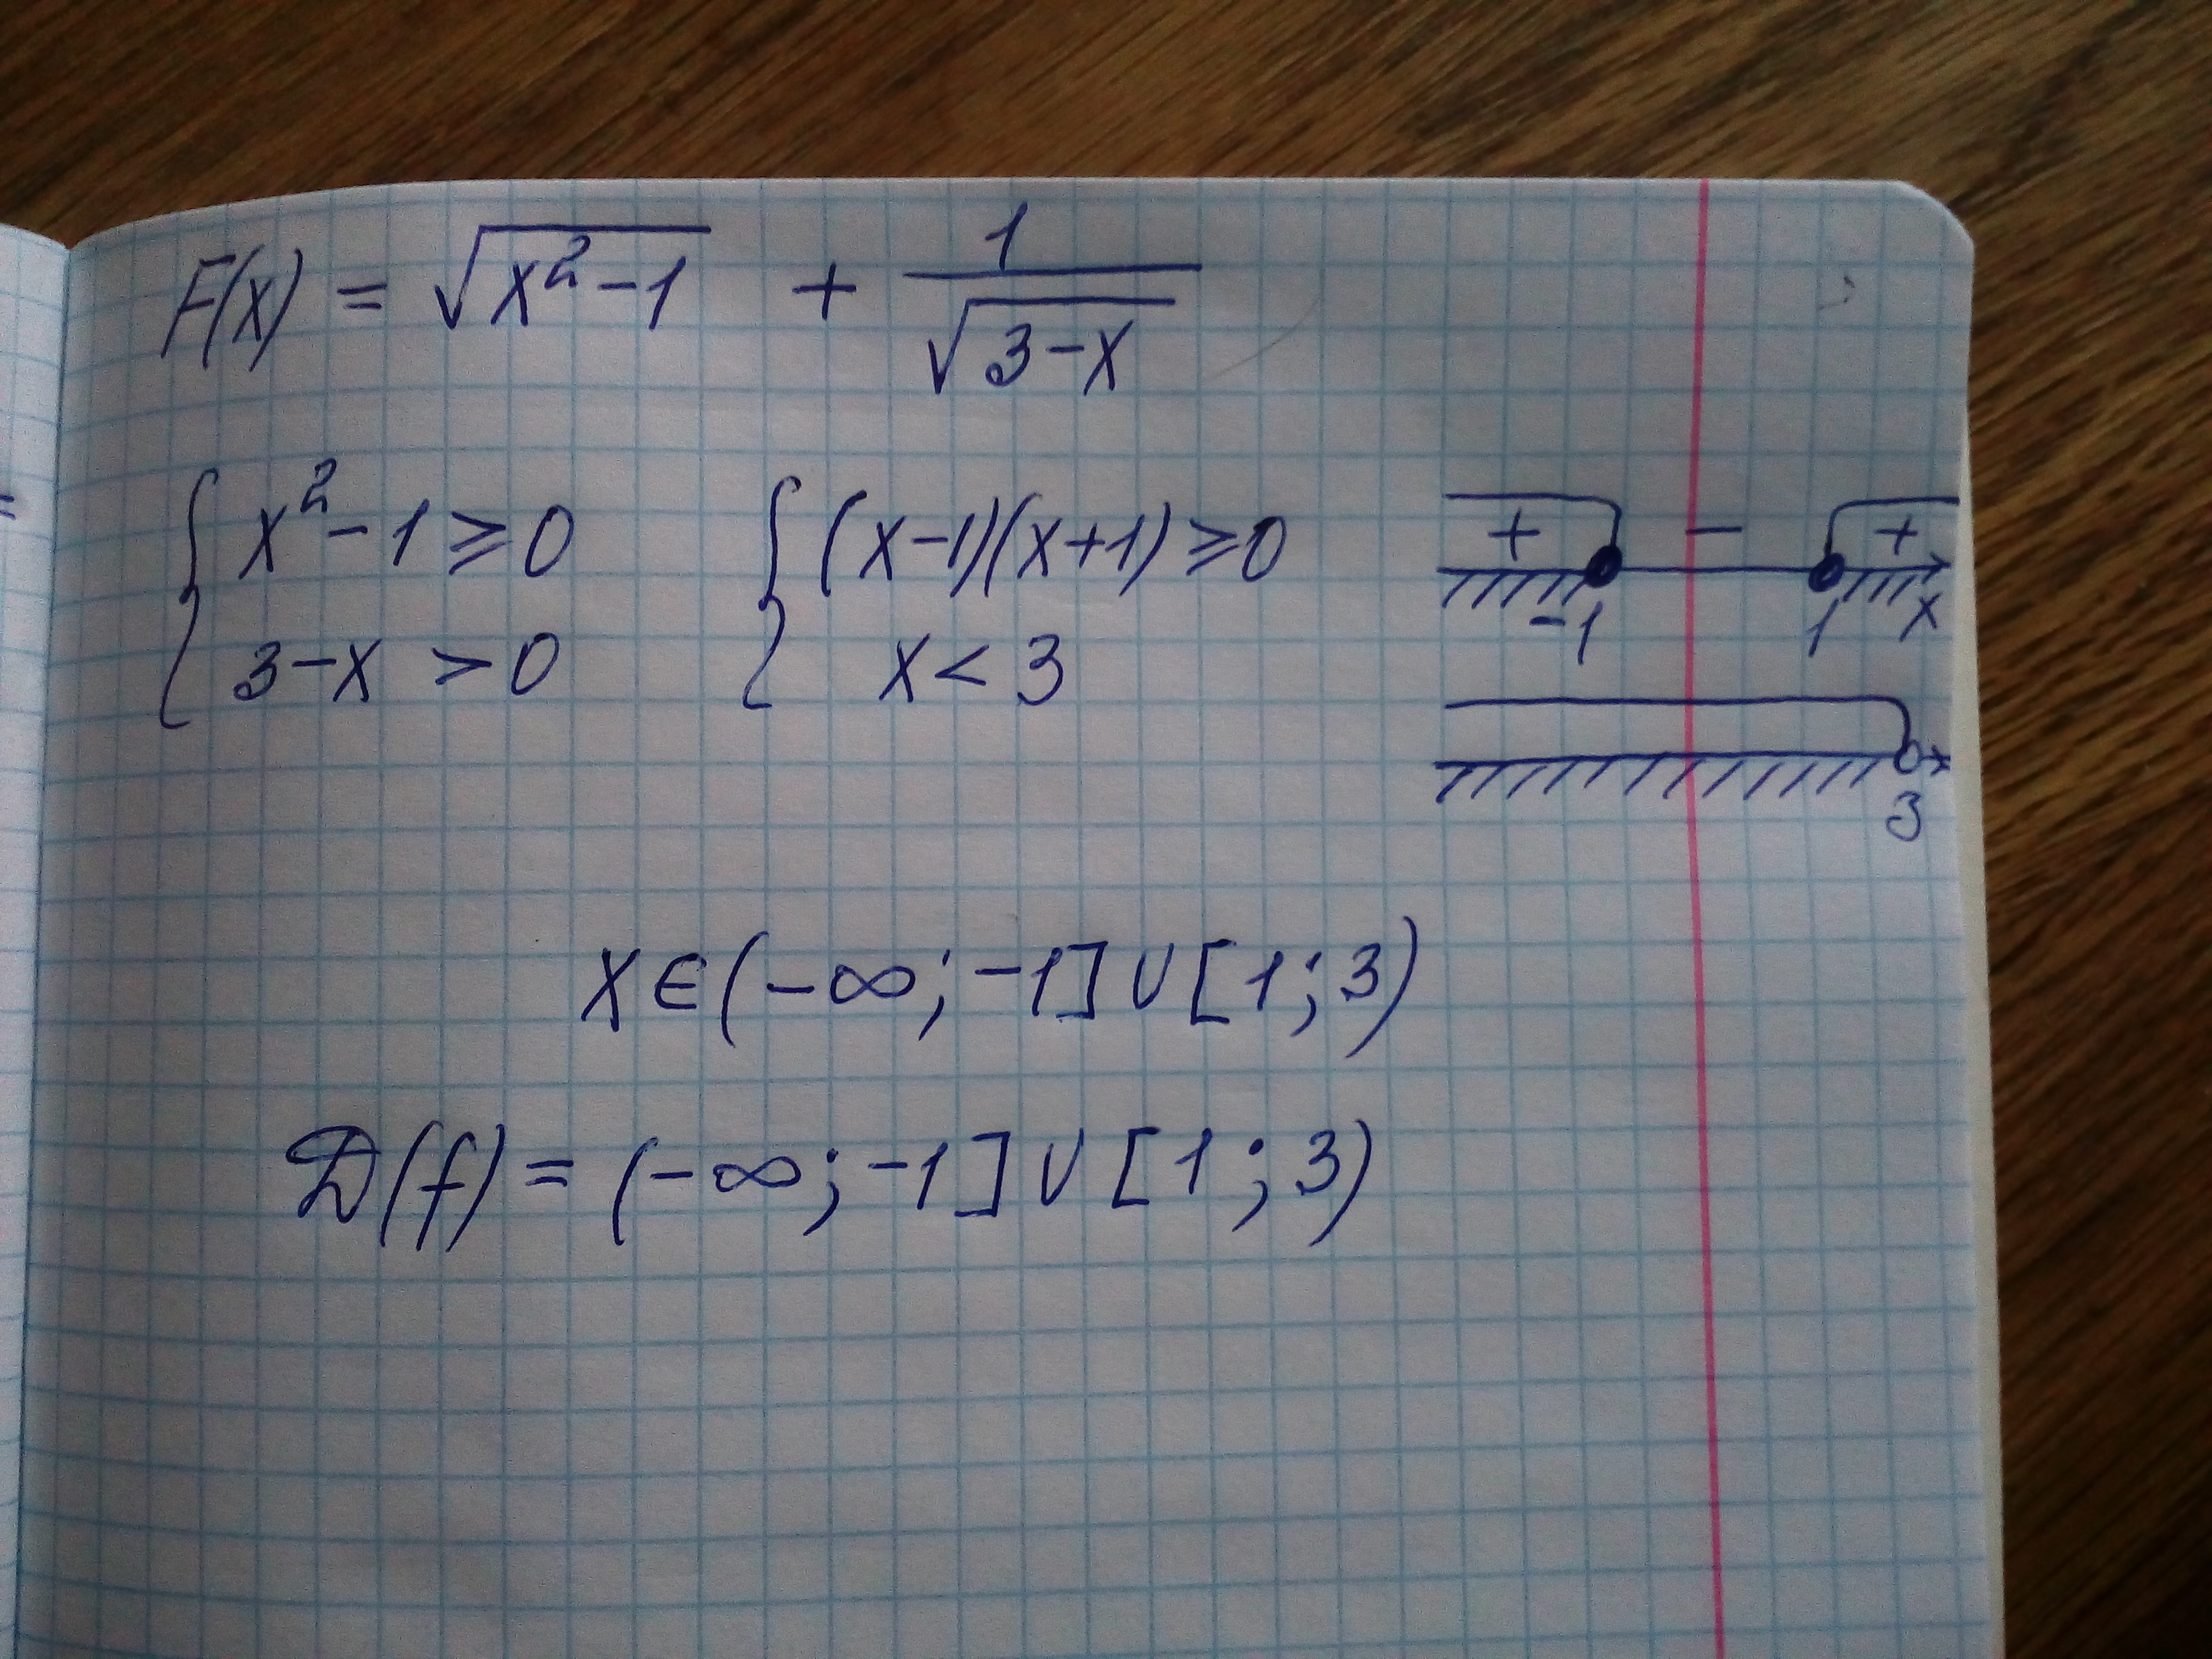 F(x) = √(x² - 1) + 1/√(3 - x)
{ x² - 1 ⩾ 0 { (x-1)(x+1) ⩾ 0
3 - x > 0 x < 3
+ - +
-1 1 x
3
x ∈ (-∞; -1] ∪ [1; 3)
D(f) = (-∞; -1] ∪ [1; 3)